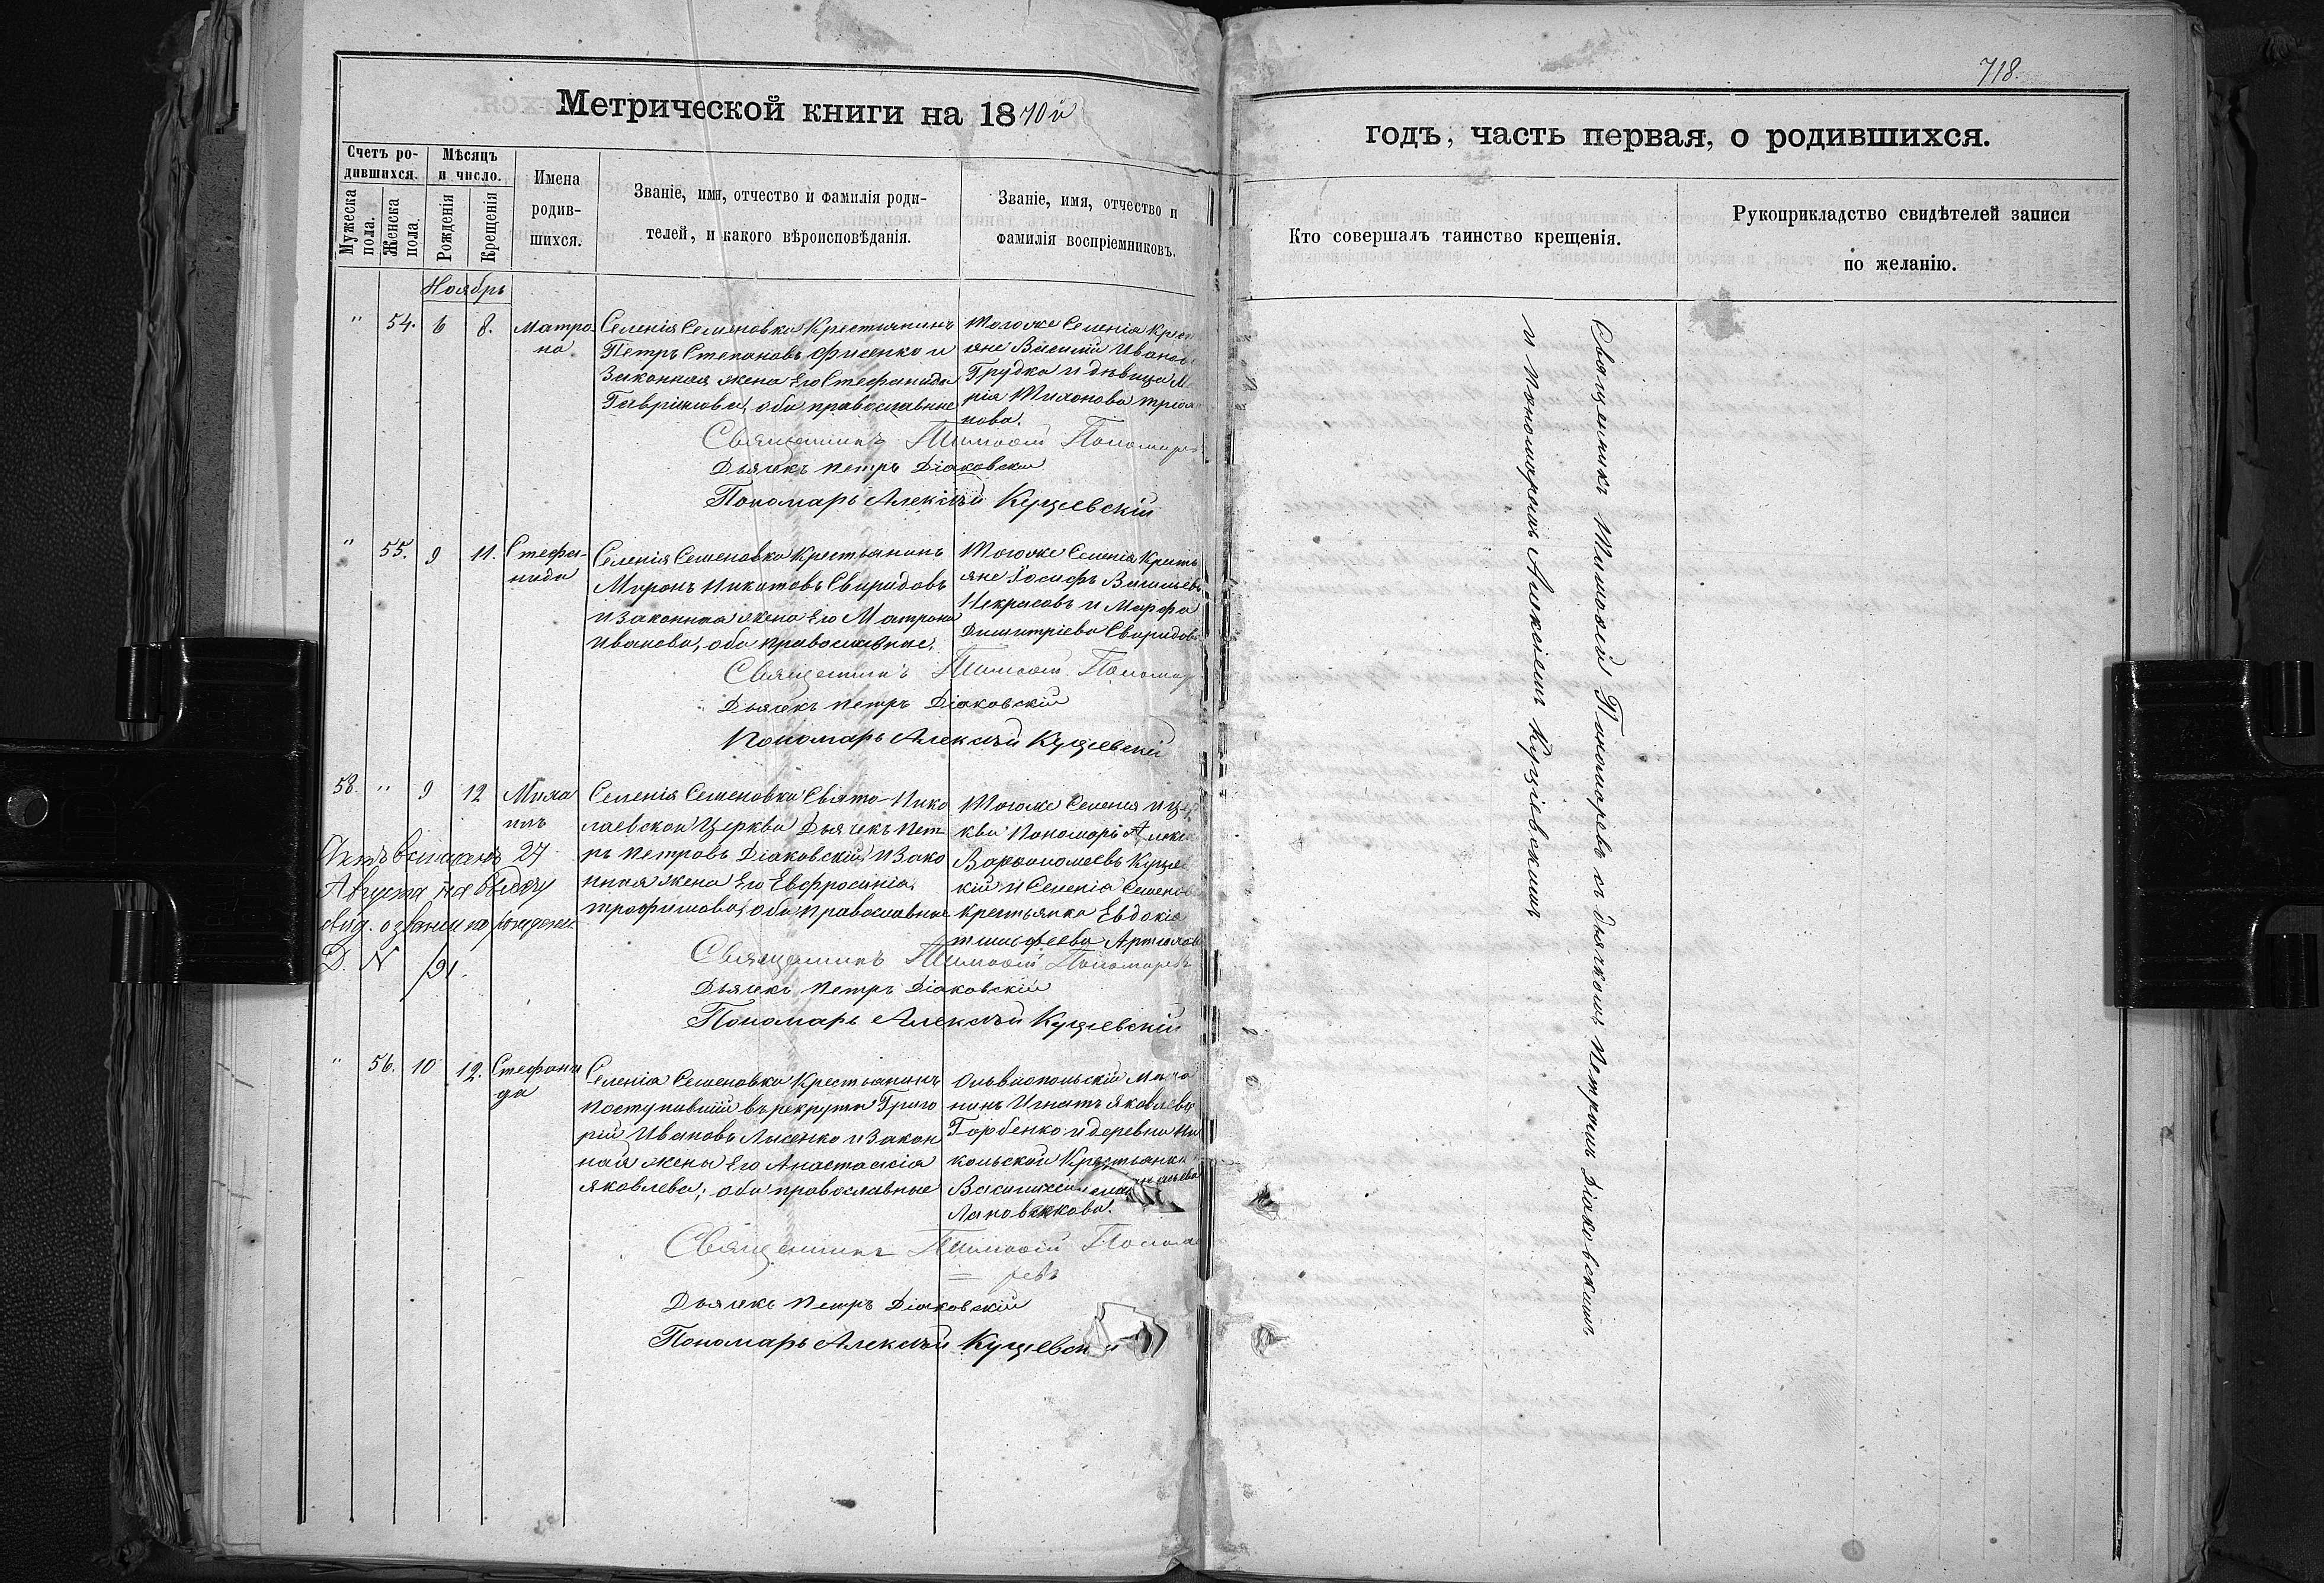 718.
Метрической книги на 1870й
годъ, часть первая, о родившихся.
Счетъ ро-
дившихся.
Мужеска
пола.
Женска
пола.
Мѣсяцъ
и число.
Рожденія
Крещенія
Имена
родив-
шихся.
Званіе, имя, отчество и фамилія роди-
телей, и какого вѣроисповѣданія.
Званіе, имя, отчество и
фамилія воспріемниковъ.
Кто совершалъ таинство крещенія.
Рукоприкладство свидѣтелей записи
по желанію.
Ноябрь
" 54. 6 8. Матро-
на
Селенія Семеновки Крестьянинъ
Петръ Степановъ Фисенко и
Законная жена Его Стефанида
Гавріилова, оба православные
Тогоже Селенія Крест
яне Василій Ивановъ
Грудка и дѣвица Ма
рія Тихонова
нова.
Священникъ Тимоѳей Пономаревъ
Дьячекъ Петръ Діаковскій
Пономарь Алексѣй Куцевскій
" 55. 9 11. Стефа-
нида
Селенія Семеновки Крестьянинъ
Миронъ Никитовъ Свиридовъ
и Законная жена Его Матрона
Иванова, оба православные.
Тогоже Селенія Кресть
яне Іосифъ Васильевъ
Некрасовъ и Марфа
Димитріева Свиридов
Священникъ Тимоѳей Пономар
Дьячекъ Петръ Діаковскій
Пономарь Алексѣй Куцевскій
58. " 9 12 Миха
илъ
Селенія Семеновки Свято-Нико
лаевской Церкви Дьячекъ Пет
ръ Петровъ Діаковскій и Зако
нная жена Его Евфросинія
Трофимова, оба православные
Тогоже Селенія и Цер
кви Пономарь Алексѣ
Варѳоломеевъ Куцев
кій и Селенія Семенов
Крестьянка Евдокія
Тимофеева
Актъ выписанъ 27
Августа на выдачу
свид. о званіи по рожденію
Д. N /91.
Священникъ Тимоѳей Пономаревъ
Дьячекъ Петръ Діаковскій
Пономарь Алексѣй Куцевскій
" 56. 10 12. Стефани
да
Селенія Семеновки Крестьянинъ
поступившій въ рекруты Григо
рій Ивановъ Лысенко и Закон
ная жена Его Анастасія
Яковлева; оба православные
Ольвіопольскій
нинъ Игнатъ Яковлевъ
Горбенко и деревни Ни
кольской Крестьянка
Священникъ Тимоѳей Понома
= ревъ
Дьячекъ Петръ Діаковскій
Пономарь Алексѣй Куцевск й
Священникъ Тимоѳей Пономаревъ съ дьячкомъ Петромъ Діаковскимъ
и Пономаремъ Алексіемъ Куціевскимъ